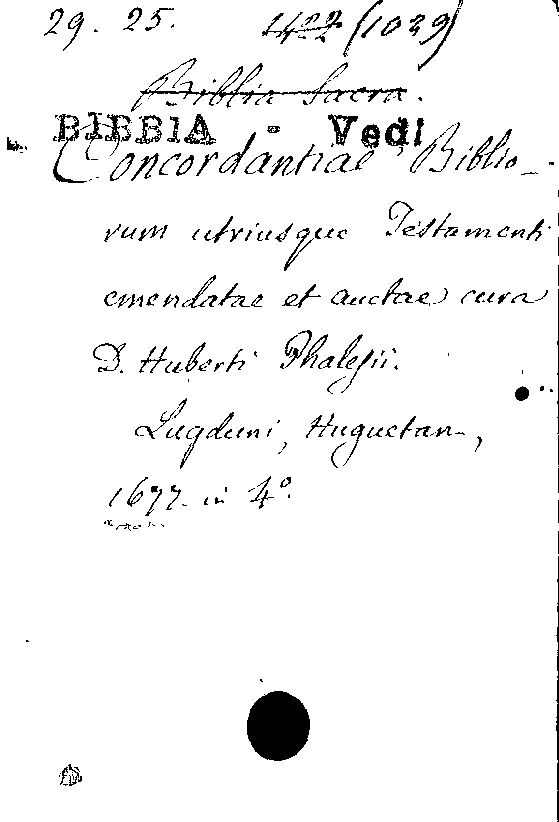 29. 25. 1422 (1029)
Biblia Sacra.
BIBBIA - Vedi
Concordantiae Biblio-
rum utriusque Testamenti
emendatae et auctae cura
D. Huberti Phalesii.
Lugduni, Huguetan-,
1677. in 4°.